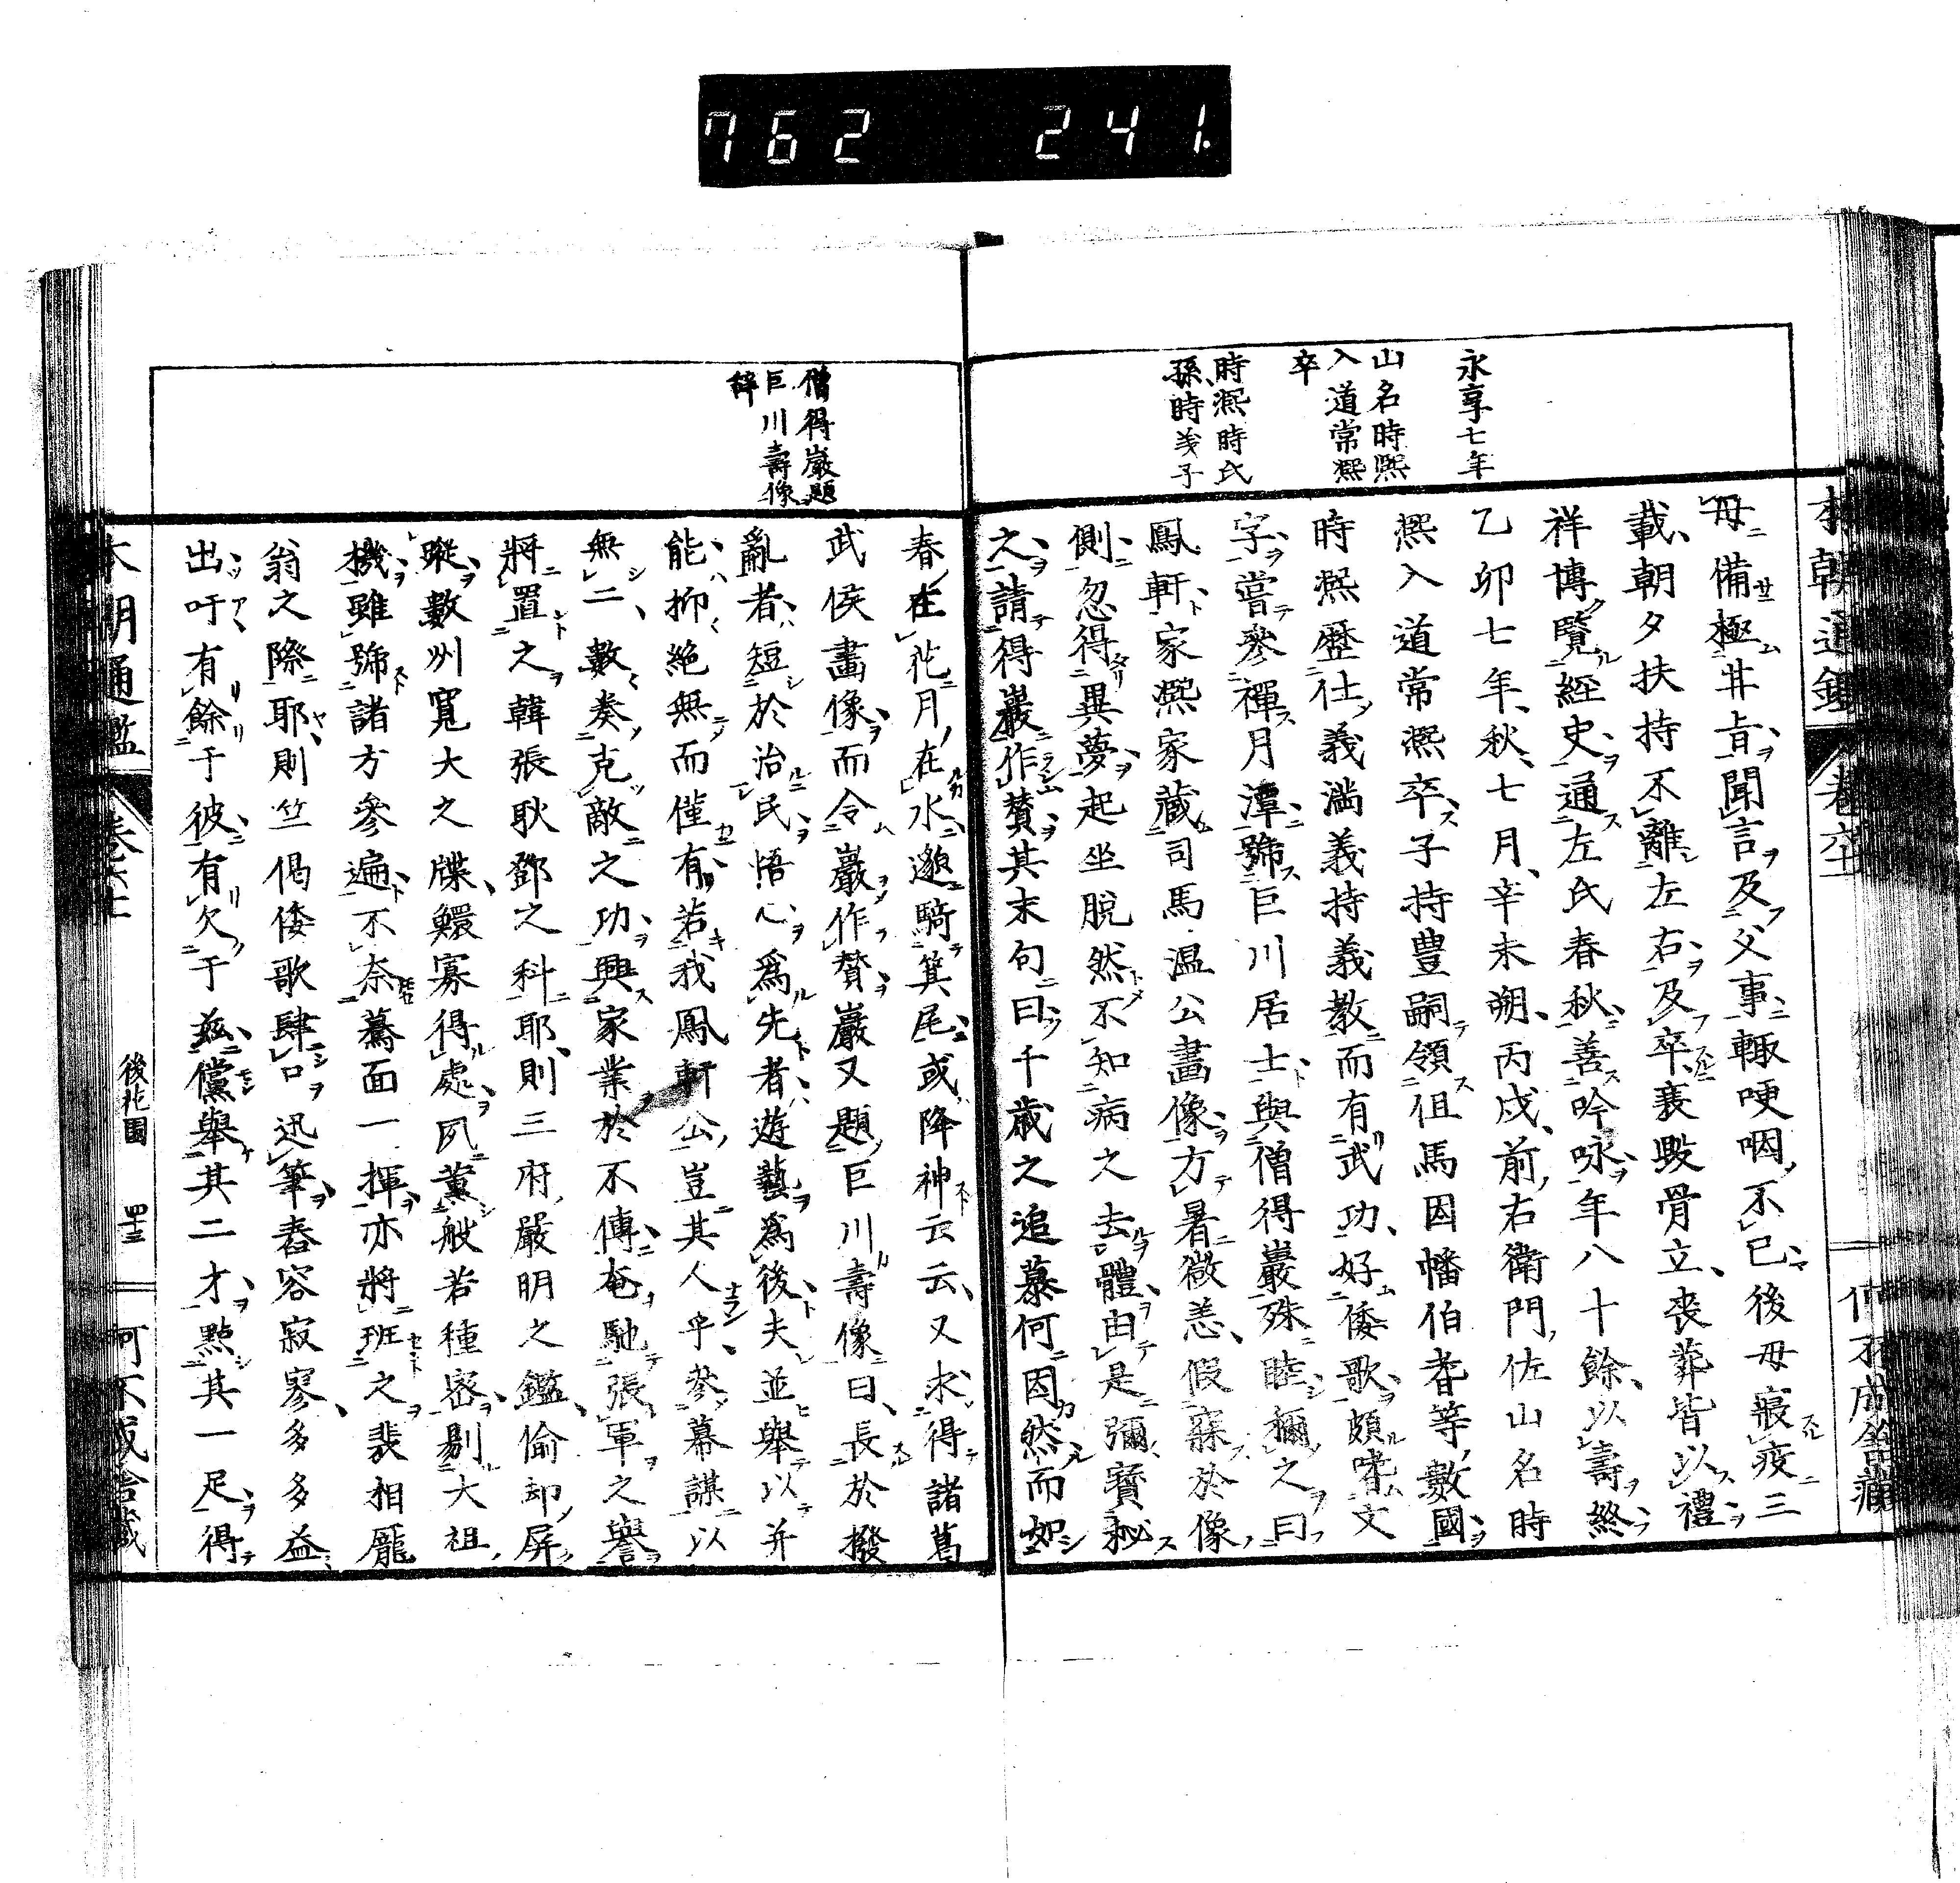 762 241.
永享七年
山名時熙
入道常熙
卒
時熙時氏
孫時義子
母備極甘旨聞言及父事輙哽咽不已後母寢疫三
載朝夕扶持不離左右及卒衰毀骨立喪葬皆以禮
祥博覽經史通左氏春秋善吟咏年八十餘以壽終
乙卯七年秋七月辛未朔丙戌前右衛門佐山名時
熙入道常熙卒子持豊嗣領伹馬因幡伯耆等數國
時熙歷仕義滿義持義教而有武功好倭歌頗嗜文
字嘗參禪月潭號巨川居士與僧得巖殊睦禰之曰
鳳軒家熙家藏司馬温公畫像方暑微恙假寐於像
側忽得異夢起坐脫然不知病之去體由是彌寳秘
之請得巖作賛其末句曰千歲之追慕何因然而恕
僧得巖題
巨川壽像
辞
春在花月在水邀騎箕尾或降神云云又求得諸葛
武侯畫像而令巖作賛巖又題巨川壽像曰長於撥
亂者短於治民悟心爲先者遊藝爲後夫並舉以并
能抑絕無而僅有若我鳳軒公豈其人乎參幕謀以
無二數奏克敵之功興家業於不傳奄馳張軍之譽
將置之韓張耿鄧之科耶則三府嚴明之鑑偷却屏
蹤數州寛大之牒鰥寡得處夙薫般若種密剔大祖
機雖號諸方參遍不奈驀面一揮亦將班之裴相龐
翁之際耶則竺偈倭歌肆口迅筆舂容寂寥多多益
出吁有餘于彼有欠于玆儻舉其二才點其一足得
本朝通鑑
後花園
四十三